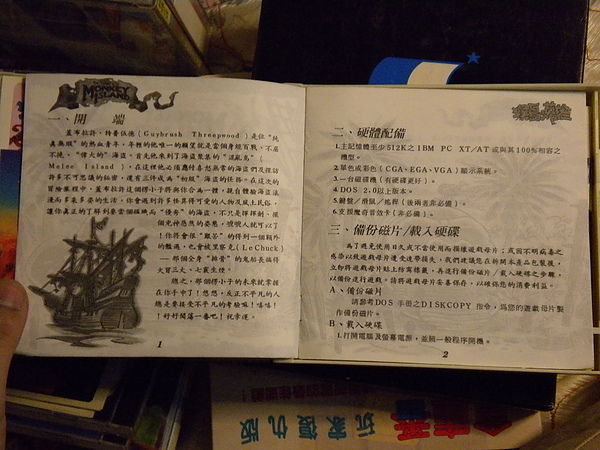 MONKEY ISLAND
一、開　端
蓋布拉許．特普伍德(Guybrush Threepwood)是位"純
真無瑕"的熱血青年，年輕的他唯一的願望就是當個身經百戰、不屈
不撓、"偉大的"海盜。首先他來到了海盜聚集的"混亂島"(
Melee Island)，在這裡他必須應付
許多不可思議的秘密，還有三件成為"初級"海盜的任務。在這次的
冒險旅程中，蓋布拉許這個楞小子將與你合為一體，親自體驗海盜浪
漫而多采多姿的生活，你會遇到許多怪異得可愛的人物及風土民俗，
讓你真正的了解到要當個道地而"優秀"的海盜，不只是鍊鋼、張
個兇神惡煞的姿態，唬唬人就可以了
！你將會很"艱苦"的得到一個額外
的難過，也會被黑察克(LeChuck)
－那個全身"排骨"的鬼船長搞得
大冒三丈，七竅生煙。
總之，那個楞小子的未來就掌握
在你手中了！悠悠，反正不平凡的人
總是要接受不平凡的考驗嘛！嘻嘻
！好好闖蕩一番吧！祝幸運。
1
二、硬體配備
1.主記憶體至少512K之IBM PC XT/AT或與其100%相容之
機型。
2.單色或彩色(CGA、EGA、VGA)顯示系統。
3.一台磁碟機(有硬碟更好)。
4.DOS 2.0以上版本。
5.鍵盤／滑鼠／搖桿(後兩者非必備)。
6.支援魔奇音效卡(非必備)。
三、備份磁片/載入硬碟
為了避免使用日久或不當使用而損壞遊戲母片；或因不明病毒之
感染以致遊戲母片遭受連帶損失，我們建議您在拆開本產品包裝後，
立即將遊戲母片貼上防寫標籤，再進行備份磁片／載入硬碟之步驟，
以備份進行遊戲。請將遊戲母片妥善保存，以確保您的消費利益。
A、備份磁片
請參考DOS手冊之DISKCOPY指令，為您的遊戲母片製
作備份磁片。
B、載入硬碟
1.打開電腦及螢幕電源，並照一般程序開機。
2
玩家復仇版